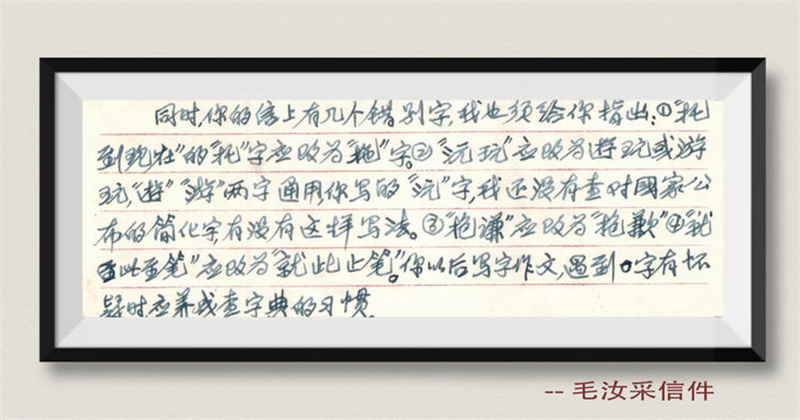 同时,你的信上有几个错别字,我也须给你指出:①"托
到现在"的"托"字应改为"拖"字。②"沅玩"应改为遊玩或游
玩,"遊""游"两字通用你写的"沅"字,我还没有查对国家公
布的简化字有没有这样写法。③"抱谦"应改为"抱歉"④"就
此至笔"应改为"就此止笔"。你以后写字作文,遇到字有怀
疑时应养成查字典的习惯.
-- 毛汝采信件